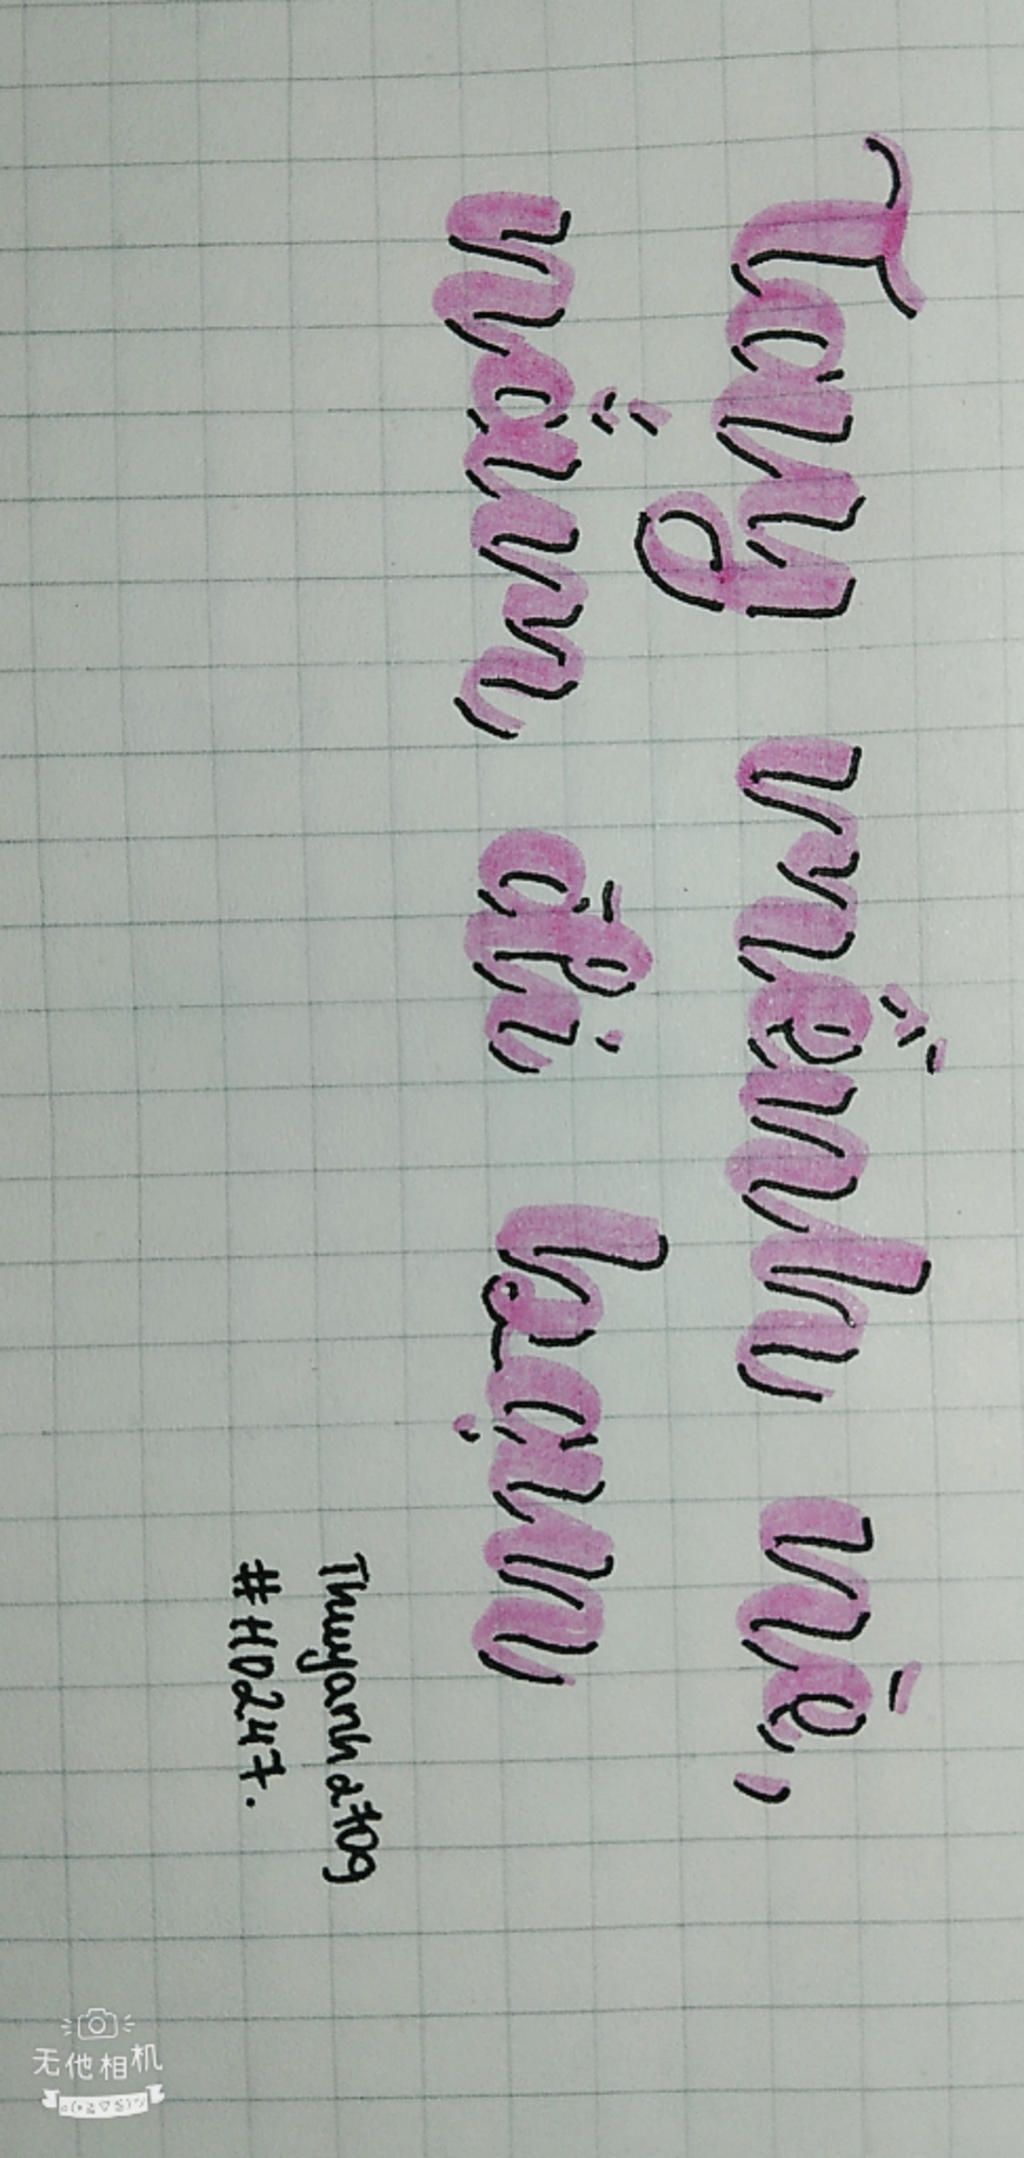 Tay mềnh nè,
nắm đi bạn
Thuyanh2709
#HD247.
无他相机